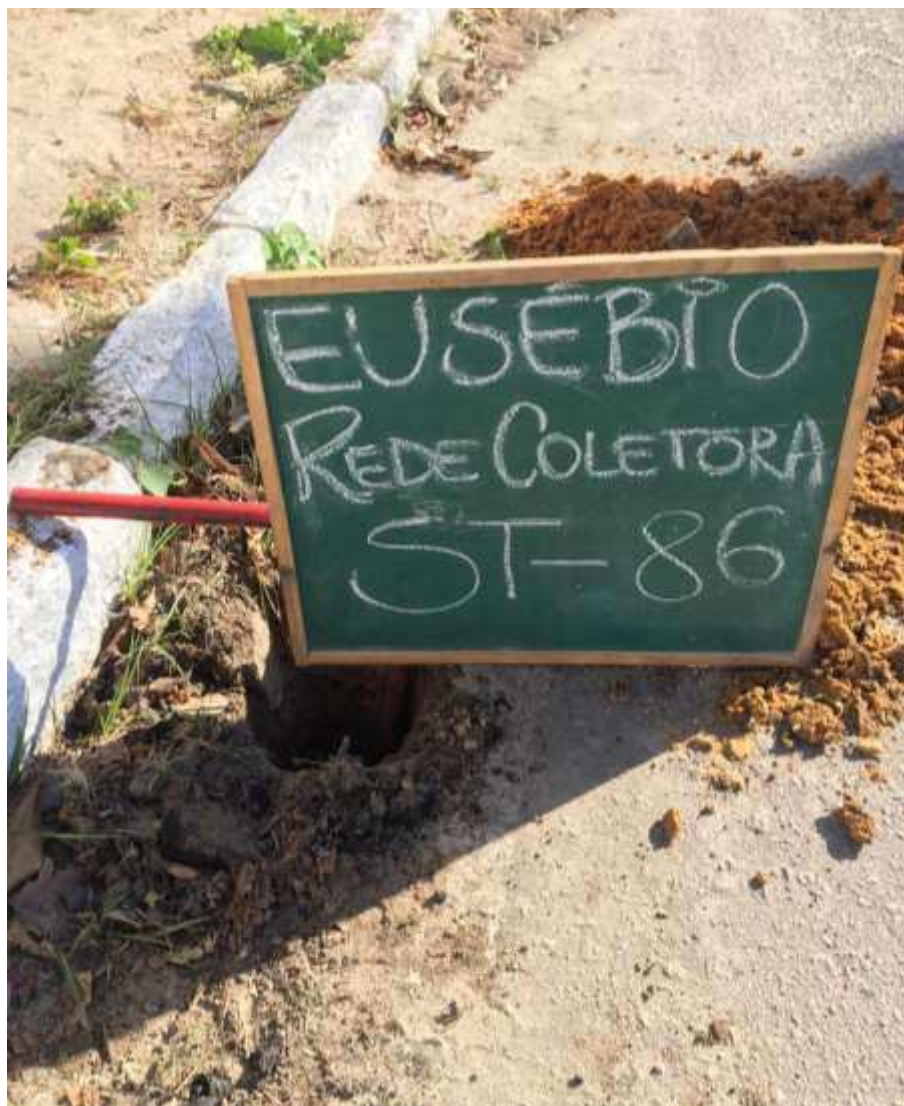 EUSÉBIO
REDE COLETORA
ST-86